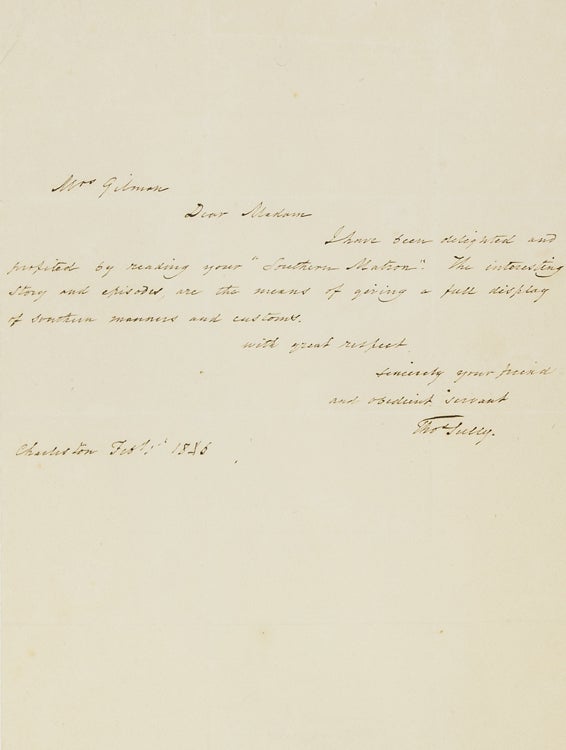 Mrs Gilman
Dear Madam
I have been delighted and
profited by reading your "Southern Matron". The interesting
story and episodes, are the means of giving a full display
of southern manners and customs.
with great respect
sincerely your friend
and obedient servant
Thos Sully.
Charleston Feby 1st 1846